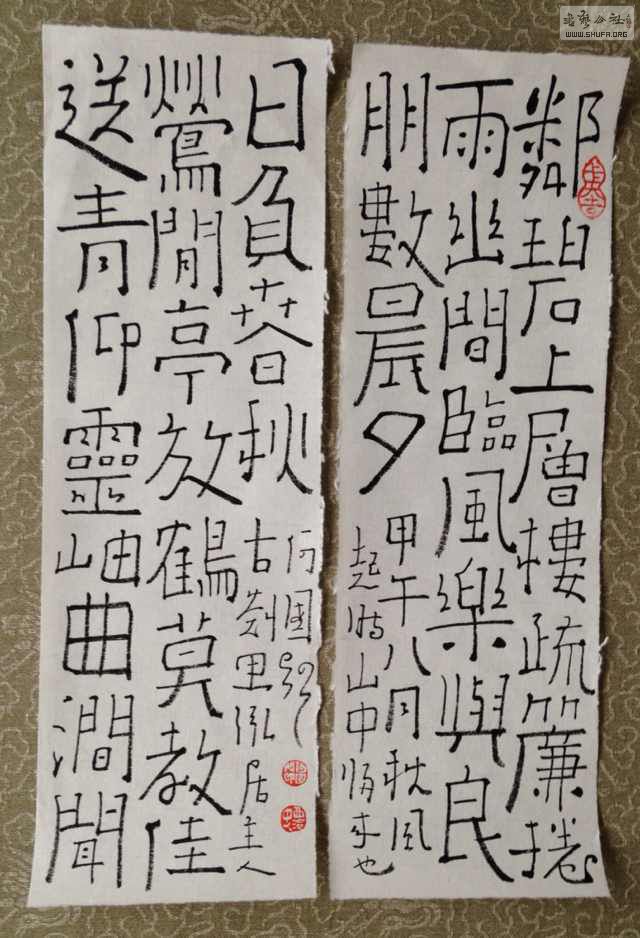 鄰碧上層樓疏簾捲
雨幽間臨風樂與良
朋數晨夕
甲午八月秋風
起時山中歸來也
送青仰靈岫曲澗聞
鶯閒亭放鶴莫教佳
日負春秋
古 里 居主人
書藝公社
WWW.SHUFA.ORG